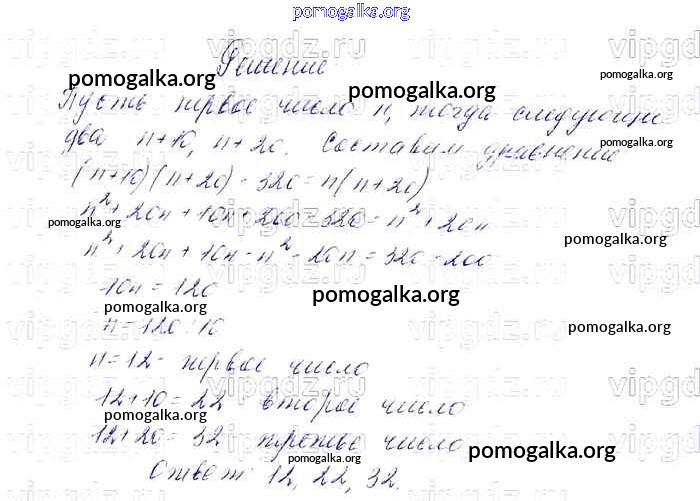 pomogalka.org
Решение
pomogalka.org
pomogalka.org
Пусть первое число n, тогда следующие
два n+10, n+20. Составим уравнение
pomogalka.org
(n+10)(n+20) - 320 = n(n+20)
n² + 20n + 10n + 200 - 320 = n² + 20n
pomogalka.org
pomogalka.org
n² + 20n + 10n - n² - 20n = 320 - 200
10n = 120
pomogalka.org
pomogalka.org
n = 120 : 10
pomogalka.org
n = 12 - первое число
12 + 10 = 22 второе число
pomogalka.org
12 + 20 = 32 третье число
pomogalka.org
pomogalka.org
Ответ: 12, 22, 32.
vipgdz.ru vipgdz.ru vipgdz.ru